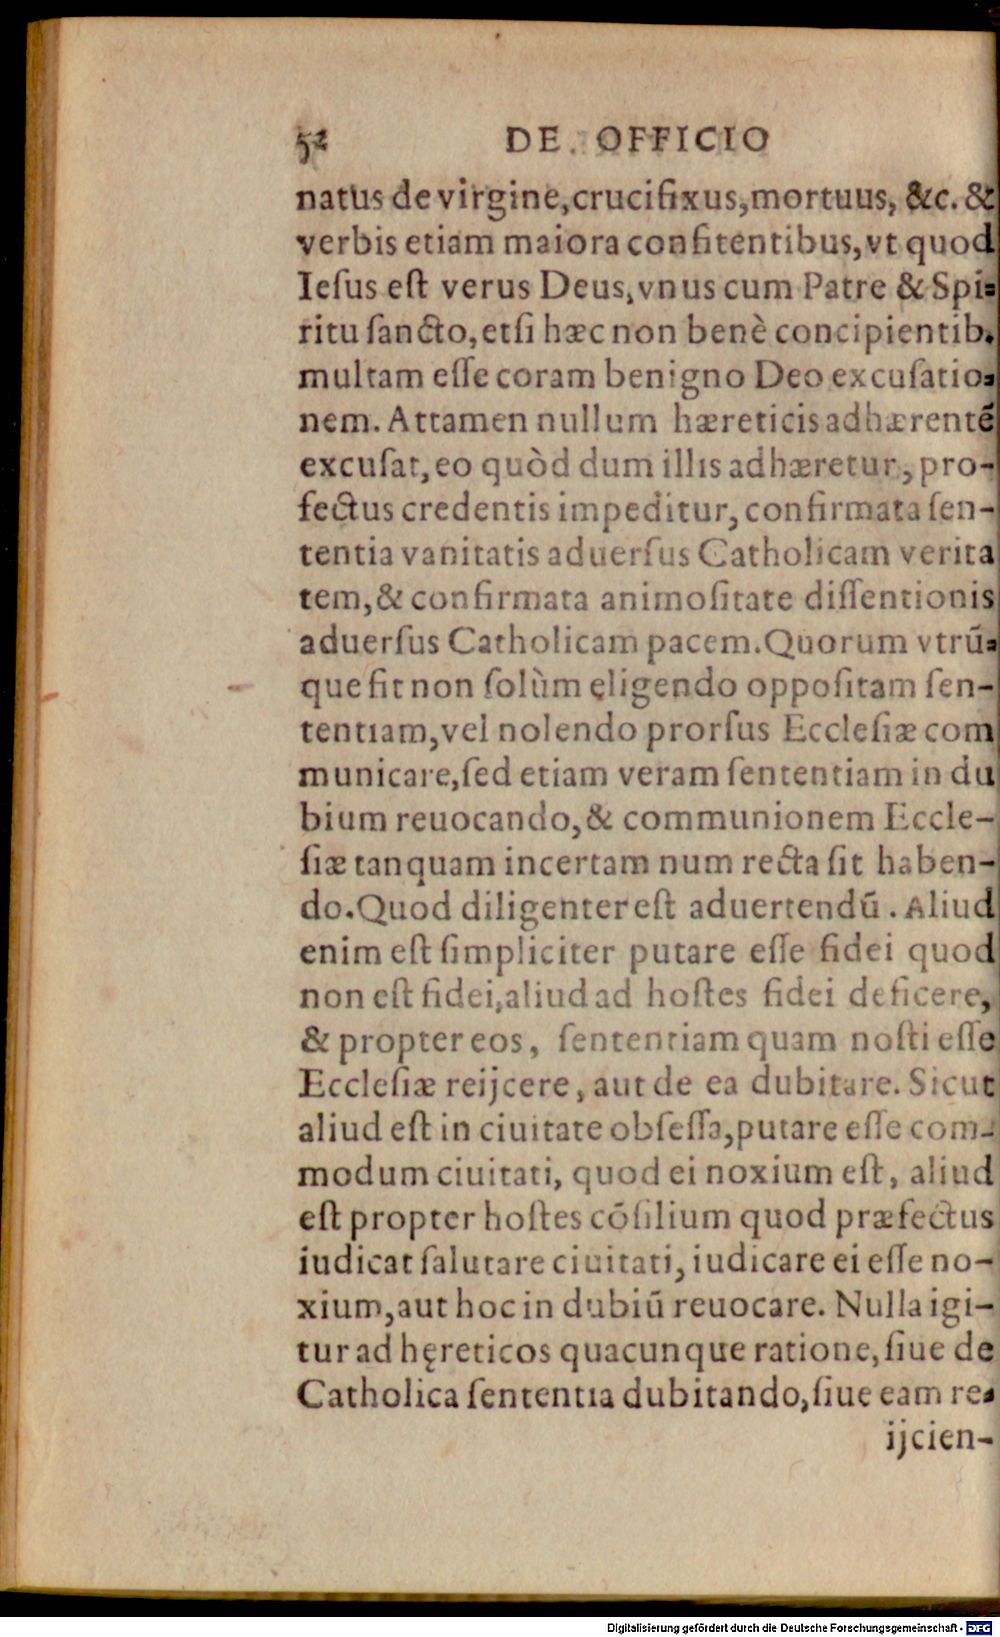 52 DE OFFICIO
natus de virgine,crucifixus,mortuus, &c. &
verbis etiam maiora confitentibus,vt quod
Ieſus eſt verus Deus,vnus cum Patre & Spi-
ritu ſancto,etſi hæc non benè concipientib.
multam eſſe coram benigno Deo excuſatio-
nem. Attamen nullum hæreticis adhærentẽ
excuſat,eo quòd dum illis adhæretur,pro-
fectus credentis impeditur,confirmata ſen-
tentia vanitatis aduerſus Catholicam verita
tem,& confirmata animoſitate diſſentionis
aduerſus Catholicam pacem.Quorum vtrũ-
que fit non ſolùm ęligendo oppoſitam ſen-
tentiam,vel nolendo prorſus Eccleſiæ com
municare,ſed etiam veram ſententiam in du
bium reuocando,& communionem Eccle-
ſiæ tanquam incertam num recta ſit haben-
do.Quod diligenter eſt aduertendũ. Aliud
enim eſt ſimpliciter putare eſſe fidei quod
non eſt fidei,aliud ad hoſtes fidei deficere,
& propter eos, ſententiam quam noſti eſſe
Eccleſiæ reijcere, aut de ea dubitare. Sicut
aliud eſt in ciuitate obſeſſa,putare eſſe com-
modum ciuitati, quod ei noxium eſt, aliud
eſt propter hoſtes cõſilium quod præfectus
iudicat ſalutare ciuitati, iudicare ei eſſe no-
xium,aut hoc in dubiũ reuocare. Nulla igi-
tur ad hęreticos quacunque ratione,ſiue de
Catholica ſententia dubitando,ſiue eam re-
ijcien-
Digitalisierung gefördert durch die Deutsche Forschungsgemeinschaft - DFG